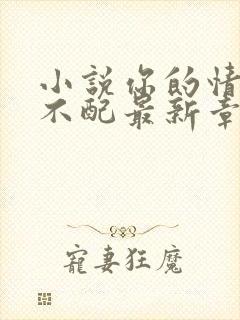 小説你的情
不配最新章
寵妻狂魔